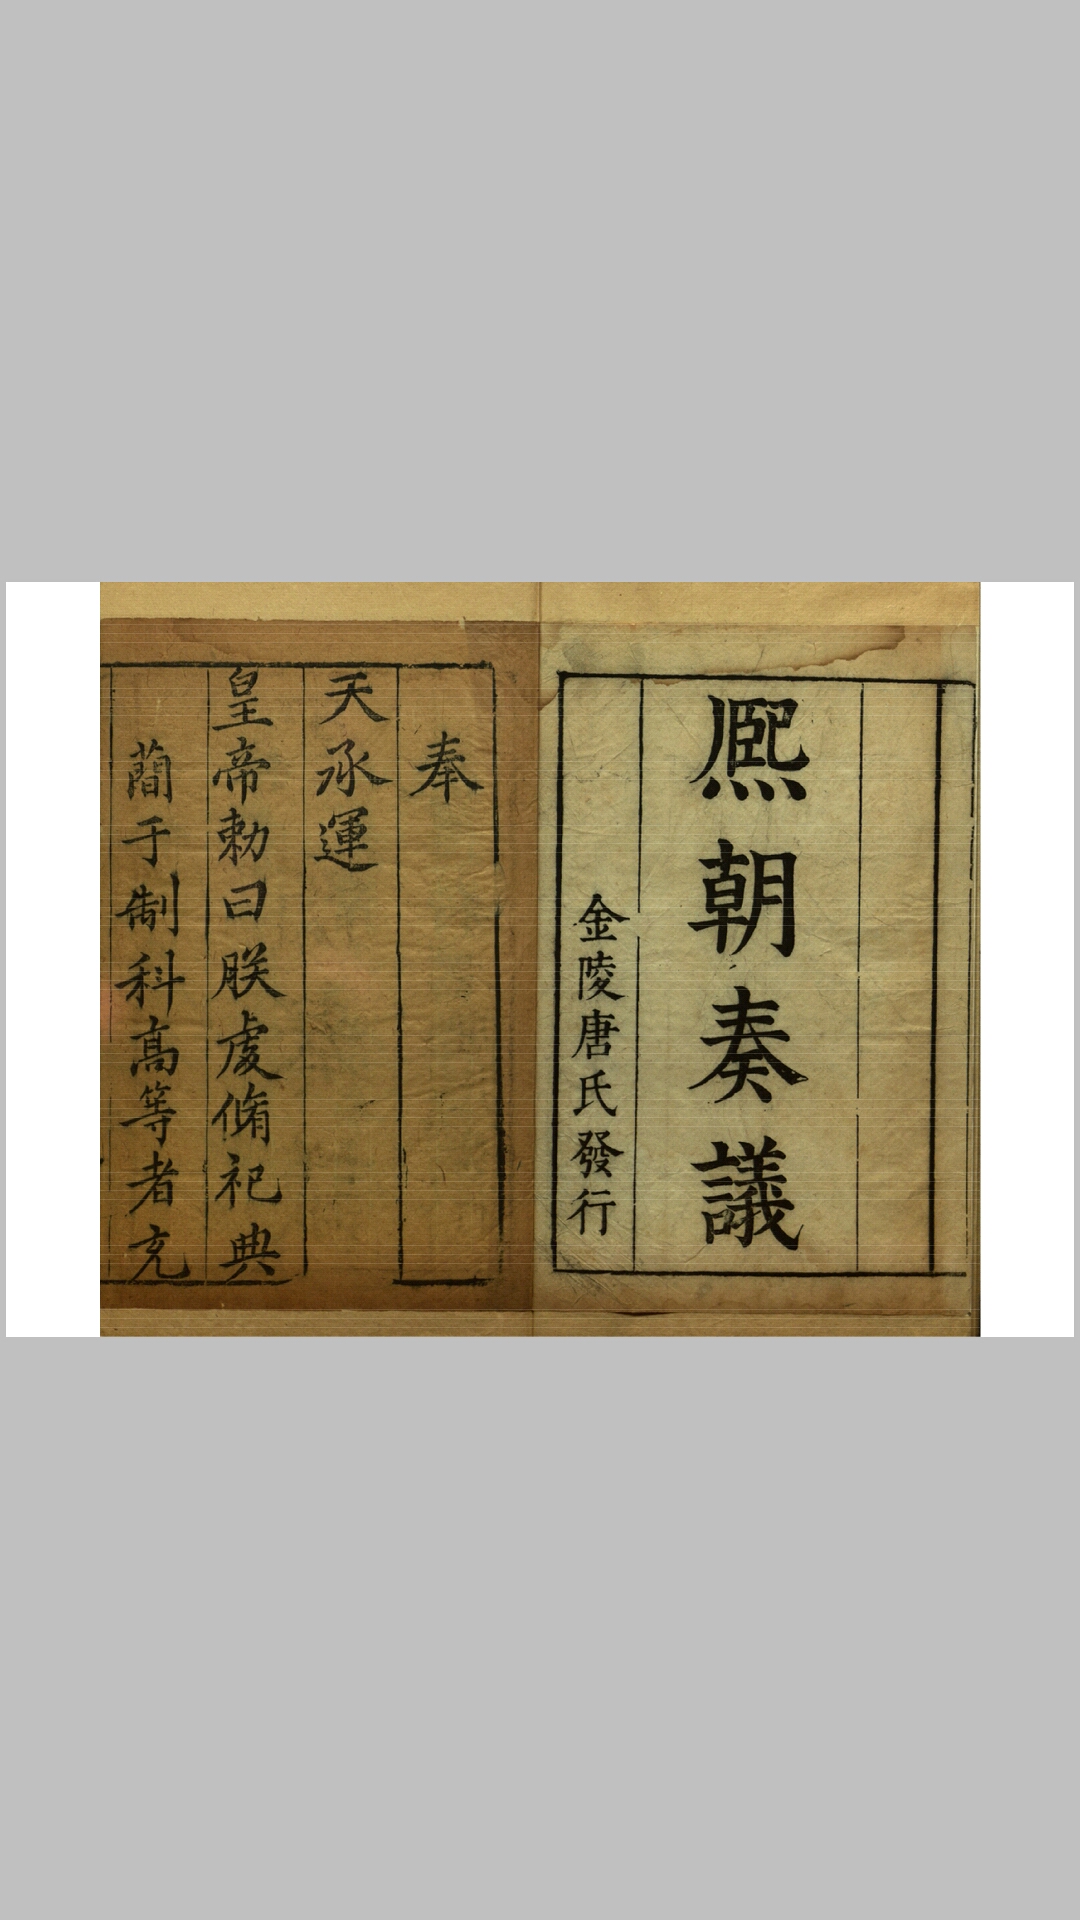 熈朝奏議
金陵唐氏發行
奉
天承運
皇帝勅曰朕虔脩祀典
蕳于制科高等者充